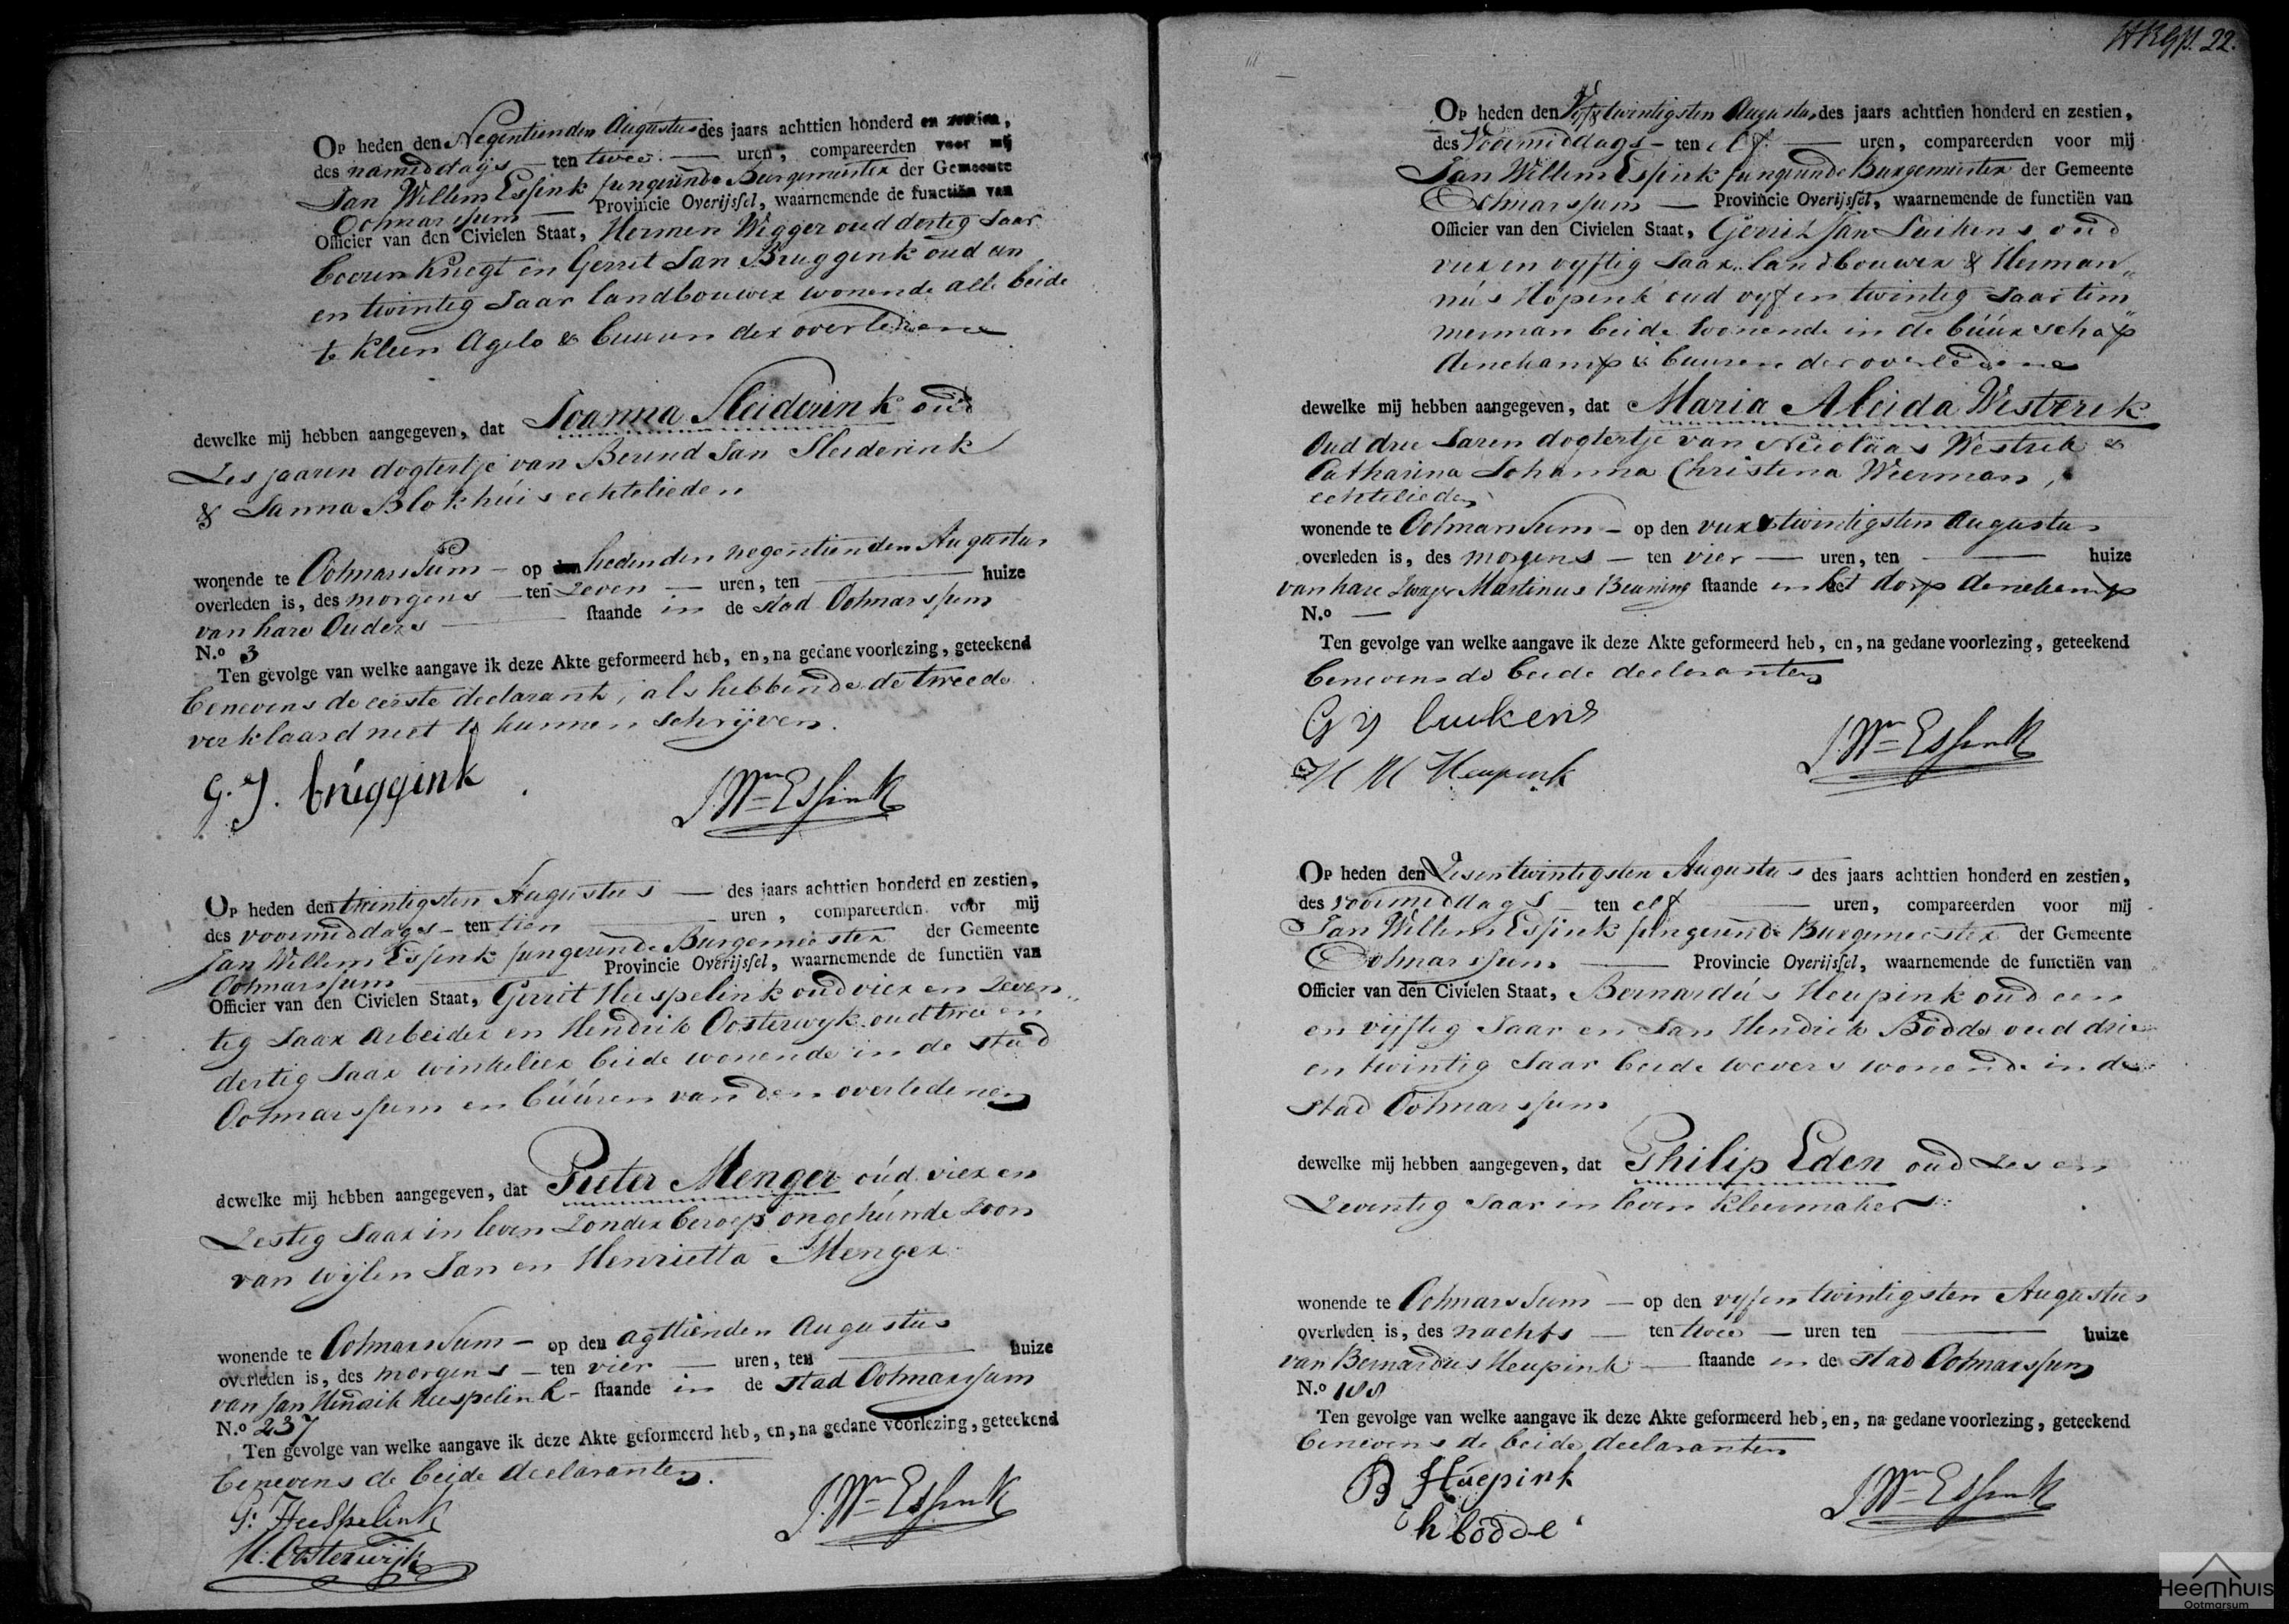 Op heden den Negentienden Augustus des jaars achttien honderd en zestien,
des namiddags — ten twee — uren, compareerden voor mij
Jan Willem Essink fungerende Burgemeester der Gemeente
Ootmarssum — Provincie Overijssel, waarnemende de functiën van
Officier van den Civielen Staat, Hermen Wigger oud dertig Jaar
boeren Knegt en Gerrit Jan Bruggink oud een
en twintig Jaar landbouwer wonende alle beide
te Kleen Agelo & buuren der overledene
dewelke mij hebben aangegeven, dat Joanna Sleiderink oud
Zes jaaren dogtertje van Berend Jan Sleiderink
& Janna Blokhuis echtelieden
wonende te Ootmarssum — op heden den negentienden Augustus
overleden is, des morgens — ten Zeven — uren, ten — huize
van hare Ouders — staande in de stad Ootmarssum
N.o 3
Ten gevolge van welke aangave ik deze Akte geformeerd heb, en, na gedane voorlezing, geteekend
benevens de eerste declarant, als hebbende de tweede
verklaard niet te kunnen schrijven.
G. J. brüggink
J. Wm Essink
Op heden den twintigsten Augustus — des jaars achttien honderd en zestien,
des voormiddags — ten tien — uren, compareerden voor mij
Jan Willem Essink fungerende Burgemeester der Gemeente
Ootmarssum — Provincie Overijssel, waarnemende de functiën van
Officier van den Civielen Staat, Gerrit Heespelink oud vier en Zeven
tig Jaar Arbeider en Hendrik Oosterwyk oud twee en
dertig Jaar winkelier beide wonende in de stad
Ootmarssum en büüren van den overledenen
dewelke mij hebben aangegeven, dat Pieter Menger oud vier en
Zestig Jaar in leven Zonder beroep ongehuwde Zoon
van wijlen Jan en Henrietta Menger
wonende te Ootmarssum — op den agttienden Augustus
overleden is, des morgens — ten vier — uren, ten — huize
van Jan Hendrik Heespelink — staande in de stad Ootmarssum
N.o 237
Ten gevolge van welke aangave ik deze Akte geformeerd heb, en, na gedane voorlezing, geteekend
benevens de beide declaranten.
G: Heespelink
H: Oosterwijk
J. Wm Essink
22.
Op heden den Vyf & twintigsten Augustus des jaars achttien honderd en zestien,
des Voormiddags — ten elf — uren, compareerden voor mij
Jan Willem Essink fungerende Burgemeester der Gemeente
Ootmarssum — Provincie Overijssel, waarnemende de functiën van
Officier van den Civielen Staat, Gerrit Jan Luikens oud
vier en vyftig Jaar landbouwer & Herman„
nus Höpink oud vyf en twintig Jaar tim„
merman beide wonende in de büürschap
denekamp & buuren der overledene
dewelke mij hebben aangegeven, dat Maria Aleida Westerik
Oud drie Jaren dogtertje van Nicolaas Westrik &
Catharina Johanna Christina Weerman,
echtelieden
wonende te Ootmarssum — op den vier & twintigsten Augustus
overleden is, des morgens — ten vier — uren, ten — huize
van hare Zwager Martinus Beuning staande in het dorp denekamp
N.o —
Ten gevolge van welke aangave ik deze Akte geformeerd heb, en, na gedane voorlezing, geteekend
benevens de beide declaranten
G J luikens
H M Heupink
J. Wm Essink
Op heden den Zesentwintigsten Augustus des jaars achttien honderd en zestien,
des voormiddags — ten elf — uren, compareerden voor mij
Jan Willem Essink fungerende Burgemeester der Gemeente
Ootmarssum — Provincie Overijssel, waarnemende de functiën van
Officier van den Civielen Staat, Bernardus Heupink oud een
en vijftig Jaar en Jan Hendrik Bodde oud drie
en twintig Jaar beide wevers wonende in de
stad Ootmarssum
dewelke mij hebben aangegeven, dat Philip Eden oud Zes en
Zeventig Jaar in leven Kleermaker
wonende te Ootmarssum — op den vyfentwintigsten Augustus
overleden is, des nachts — ten twee — uren ten — huize
van Bernardus Heupink — staande in de stad Ootmarssum
N.o 188
Ten gevolge van welke aangave ik deze Akte geformeerd heb, en, na gedane voorlezing, geteekend
benevens de beide declaranten
B Huepink
h bodde
J. Wm Essink
Heemhuis
Ootmarsum